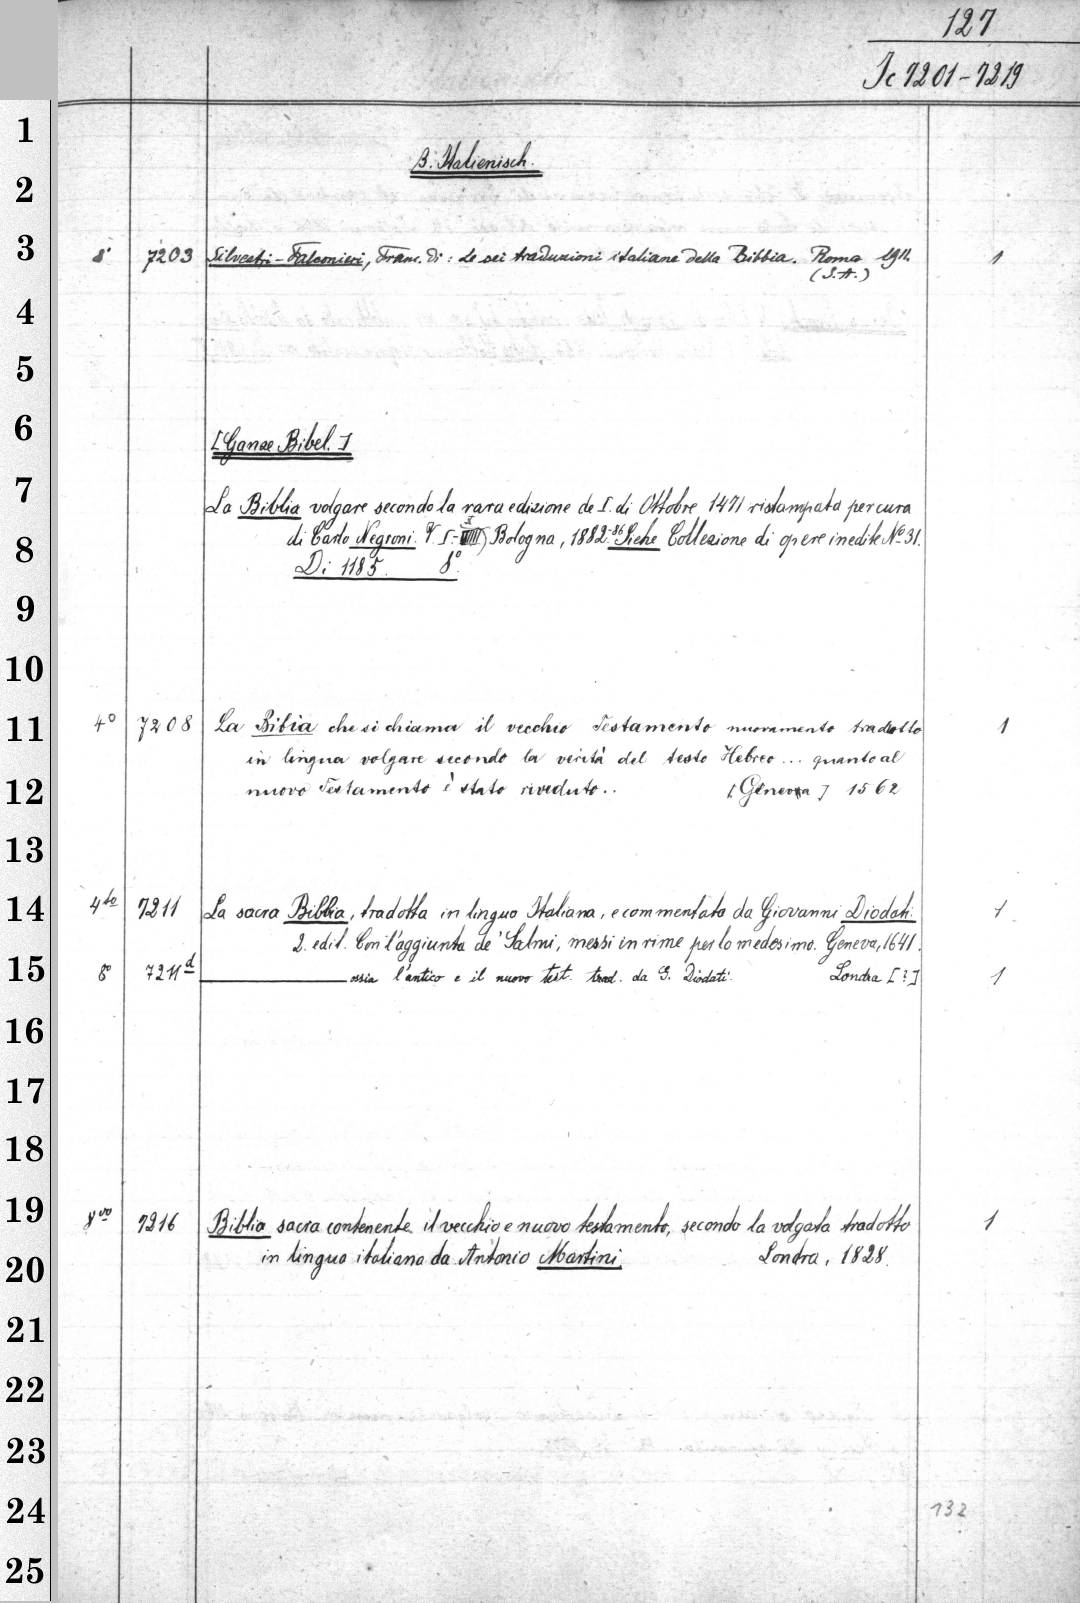 127
Jc 7201-7219
1
B. Italienisch.
2
3 8° 7203 Silvestri-Falconieri, Franc. di: Le sei traduzioni italiane della Bibbia. Roma 1911. 1
(S.A.)
4
5
6 [Ganze Bibel.]
7 La Biblia volgare secondo la rara edizione de I. di Ottobre 1471 ristampata per cura
8 di Carlo Negroni. V. I.-X Bologna, 1882-86 Siehe Collezione di opere inedite No 31.
Di 1185. 8°
9
10
11 4° 7208 La Bibia che si chiama il vecchio Testamento nuovamente tradotto 1
in lingua volgare secondo la verità del testo Hebreo ... quanto al
12 nuovo Testamento è stato riveduto.. [Geneva] 1562
13
14 4to 7211 La sacra Bibbia, tradotta in lingua Italiana, e commentata da Giovanni Diodati. 1
2. edit. Con l'aggiunta de' Salmi, messi in rime per lo medesimo. Geneva, 1641.
15 8° 7211d ossia l'antico e il nuovo test. trad. da G. Diodati. Londra [?] 1
16
17
18
19 8vo 7216 Biblia sacra contenente il vecchio e nuovo testamento, secondo la volgata tradotto 1
20 in lingua italiana da Antonio Martini. Londra, 1828.
21
22
23
24 132
25